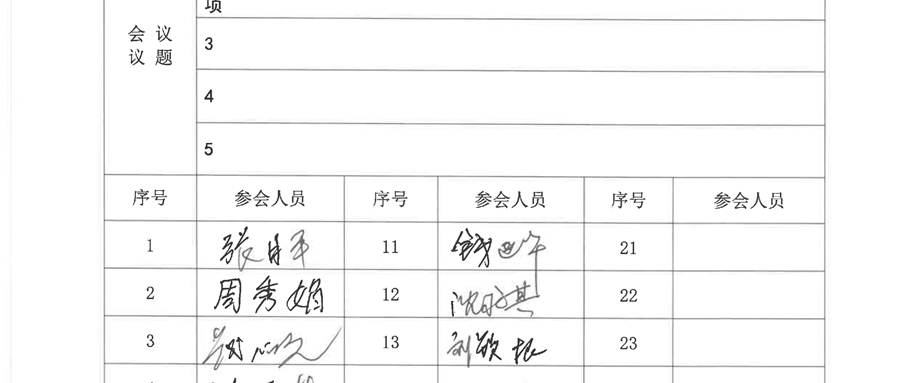 项
会 议
议 题
3
4
5
序号 参会人员 序号 参会人员 序号 参会人员
1 张 平 11 钱 21
2 周秀娟 12 沈 琪 22
3 13 刘 根 23